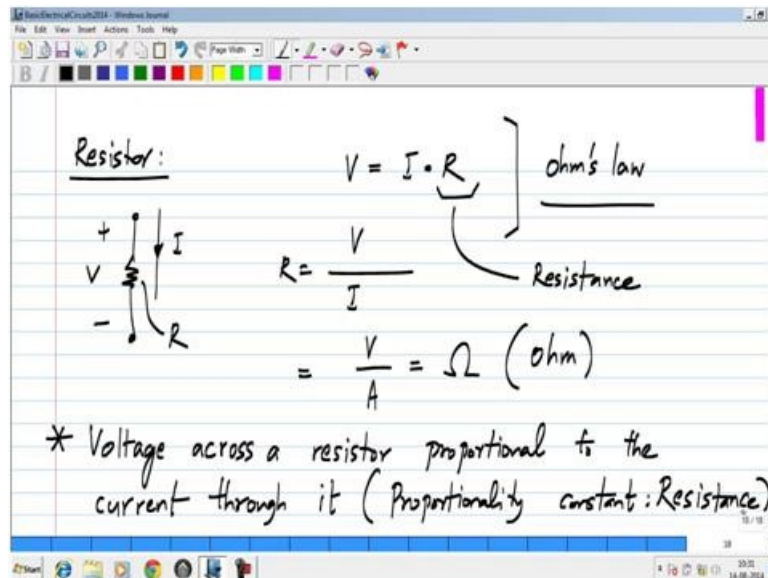 BasicElectricalCircuits2014 - Windows Journal
File Edit View Insert Actions Tools Help
Page Width
B I
Resistor:
V = I • R
ohm's law
+
I
V
R
-
R = V / I
Resistance
= V / A = Ω (ohm)
* Voltage across a resistor proportional to the
current through it (Proportionality constant: Resistance)
18 / 18
18
Start
10:31
14-08-2014